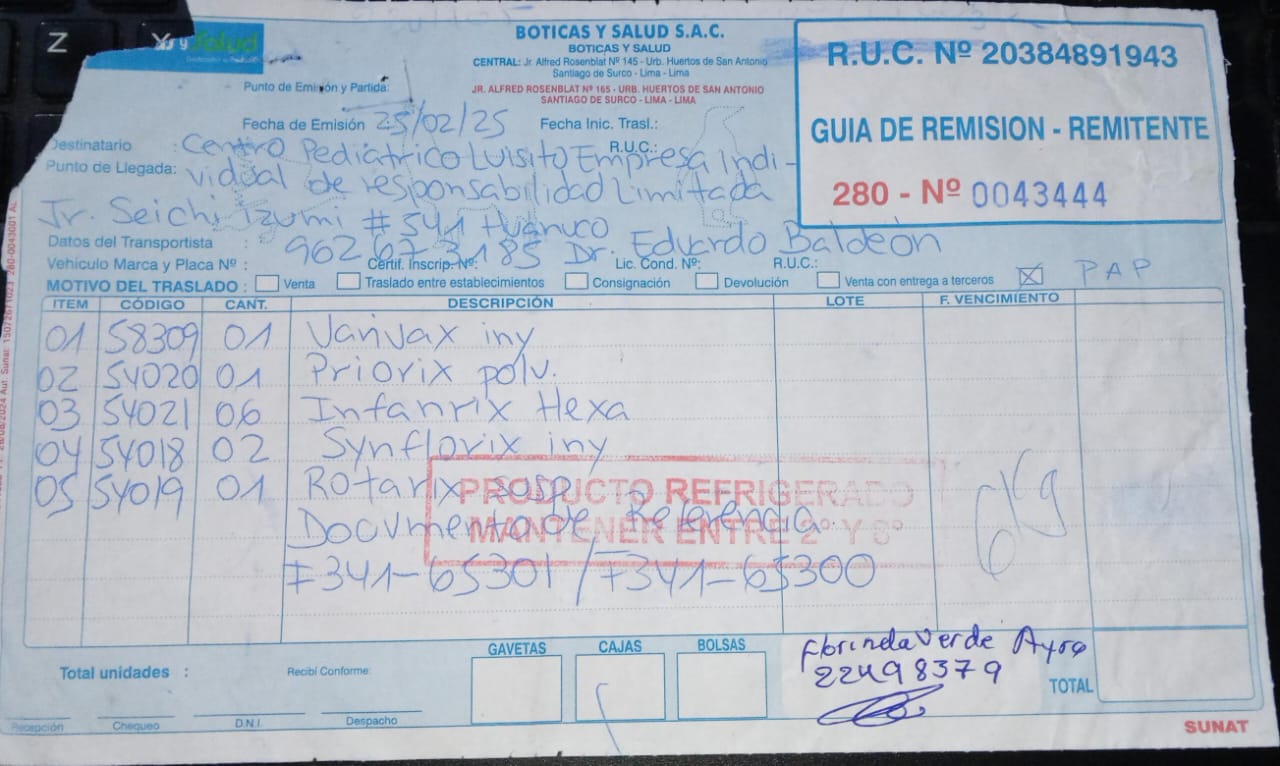 y Salud
BOTICAS Y SALUD S.A.C.
BOTICAS Y SALUD
CENTRAL: Jr. Alfred Rosenblat Nº 145 - Urb. Huertos de San Antonio
Santiago de Surco - Lima - Lima
JR. ALFRED ROSENBLAT Nº 165 - URB. HUERTOS DE SAN ANTONIO
SANTIAGO DE SURCO - LIMA - LIMA
R.U.C. Nº 20384891943
GUIA DE REMISION - REMITENTE
280 - Nº 0043444
Punto de Emisión y Partida:
Fecha de Emisión 25/02/25 Fecha Inic. Trasl.:
Destinatario : Centro Pediátrico Luisito Empresa Indi- R.U.C.:
Punto de Llegada: vidual de responsabilidad Limitada
Jr. Seichi Izumi # 541 Huánuco
Datos del Transportista : 962673185 Dr. Eduardo Baldeón
Vehículo Marca y Placa Nº : Certif. Inscrip. Nº: Lic. Cond. Nº: R.U.C.:
MOTIVO DEL TRASLADO : Venta Traslado entre establecimientos Consignación Devolución Venta con entrega a terceros X PAP
ITEM CÓDIGO CANT. DESCRIPCIÓN LOTE F. VENCIMIENTO
01 58309 01 Varivax iny
02 54020 01 Priorix polv.
03 54021 06 Infanrix Hexa
04 54018 02 Synflorix iny
05 54019 01 Rotarix susp
PRODUCTO REFRIGERADO
MANTENER ENTRE 2º Y 8º
Documento de Referencia
F341-65301 / F341-65300
6Kg
Total unidades : Recibí Conforme: GAVETAS CAJAS BOLSAS
Florinda Verde
22498379
TOTAL
Recepción Chequeo D.N.I. Despacho
SUNAT